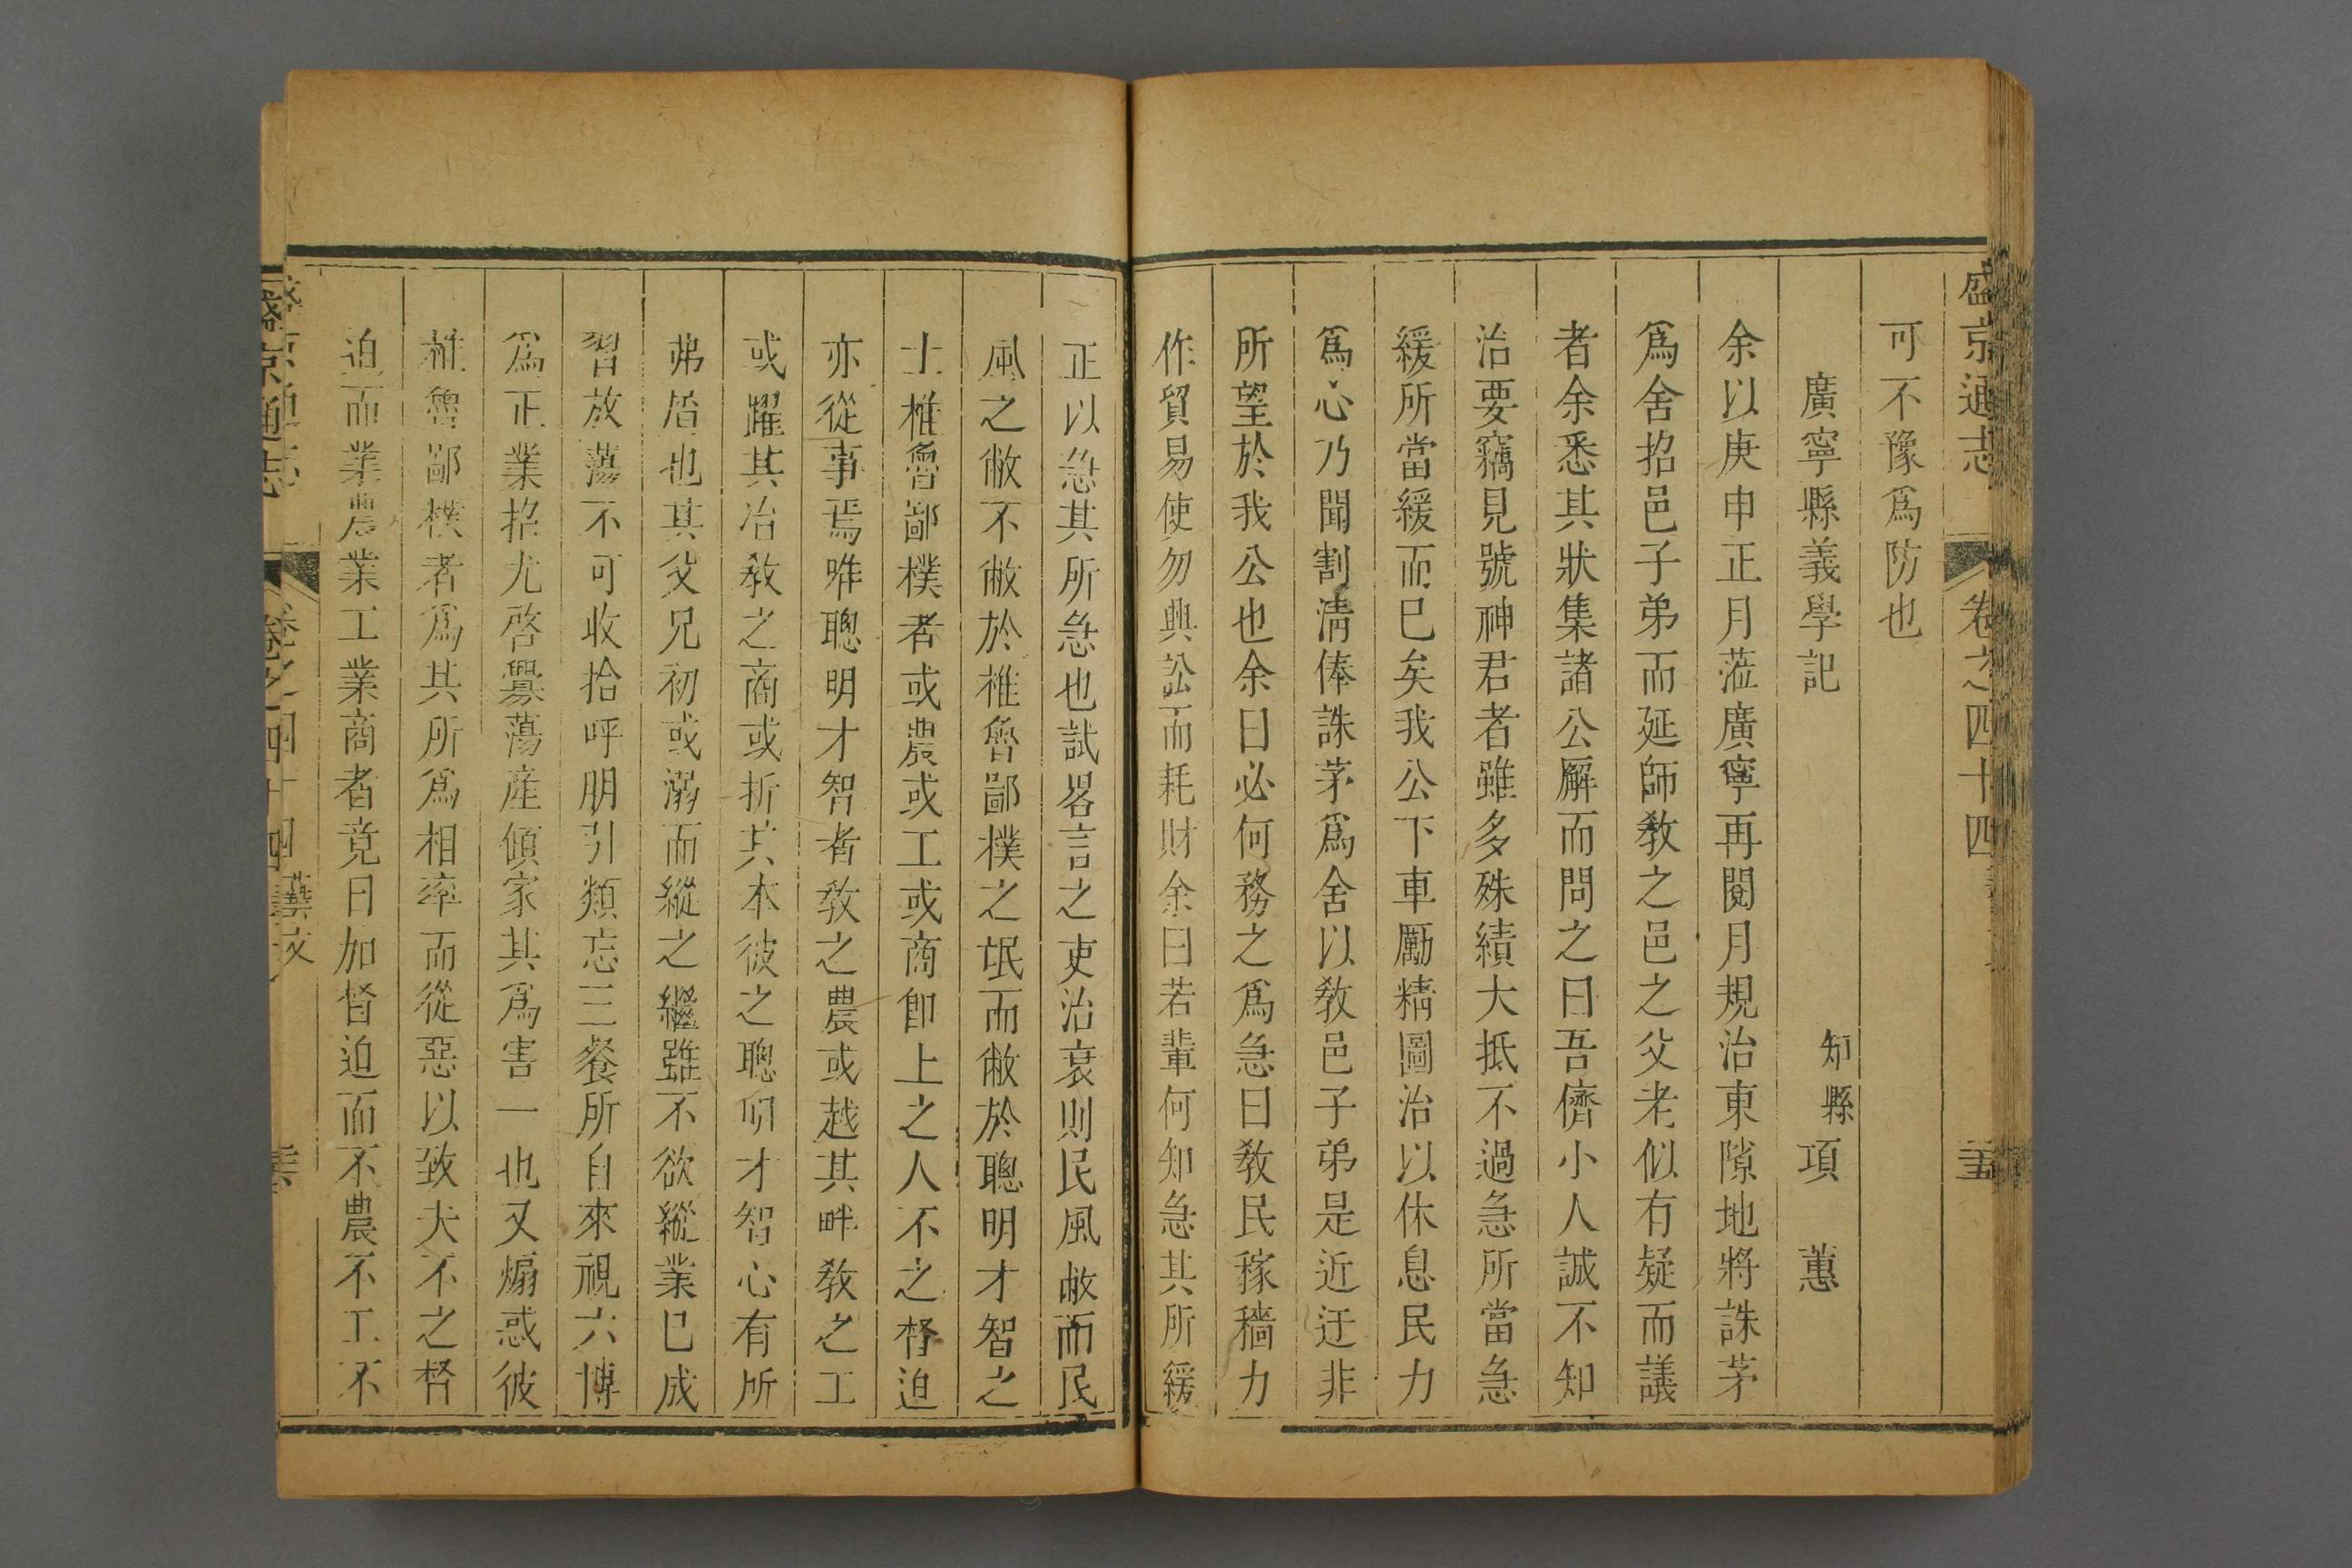 盛京通志 卷之四十四 二十五
可不豫爲防也
廣寧縣義學記
知縣項 蕙
余以庚申正月蒞廣寧再閱月規治東隙地將誅茅
爲舍招邑子弟而延師教之邑之父老似有疑而議
者余悉其狀集諸公廨而問之曰吾儕小人誠不知
治要竊見號神君者雖多殊績大抵不過急所當急
緩所當緩而巳矣我公下車勵精圖治以休息民力
爲心乃聞割淸俸誅茅爲舍以敎邑子弟是近迂非
所望於我公也余曰必何務之爲急曰敎民稼穡力
作貿易使勿興訟而耗財余曰若輩何知急其所緩
正以急其所急也試畧言之吏治衰則民風敝而民
風之敝不敝於椎魯鄙樸之氓而敝於聰明才智之
士椎魯鄙樸者或農或工或商卽上之人不之督迫
亦從事焉唯聰明才智者敎之農或越其畔敎之工
或躍其冶敎之商或折其本彼之聰明才智心有所
弗眉也其父兄初或溺而縱之繼雖不欲縱業巳成
習放蕩不可收拾呼朋引類忘三餐所自來視六博
爲正業招尤啓釁蕩產傾家其爲害一也又煽惑彼
椎魯鄙樸者爲其所爲相率而從惡以致夫不之督
迫而業農業工業商者竟日加督迫而不農不工不
盛京通志 卷之四十四 藝文